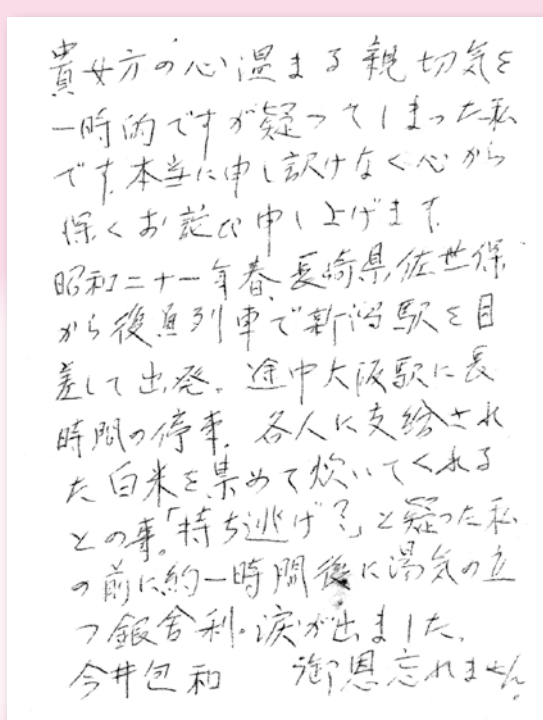 貴女方の心温まる親切気を
一時的ですが疑ってしまった私
です。本当に申し訳けなく心から
深くお詫び申し上げます。
昭和二十一年春、長崎県佐世保
から復員列車で新潟駅を目
差して出発。途中大阪駅に長
時間の停車。各人に支給され
た白米を集めて炊いてくれる
との事。「持ち逃げ?」と疑った私
の前に約一時間後に湯気の立
つ銀舎利。涙が出ました。
今井包和 御恩忘れません。